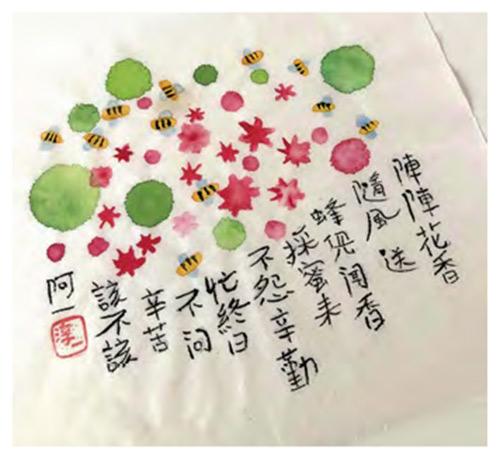 陣陣花香
隨風送
蜂兒聞香
採蜜来
不怨辛勤
忙終日
不問
辛苦
該不該
阿一